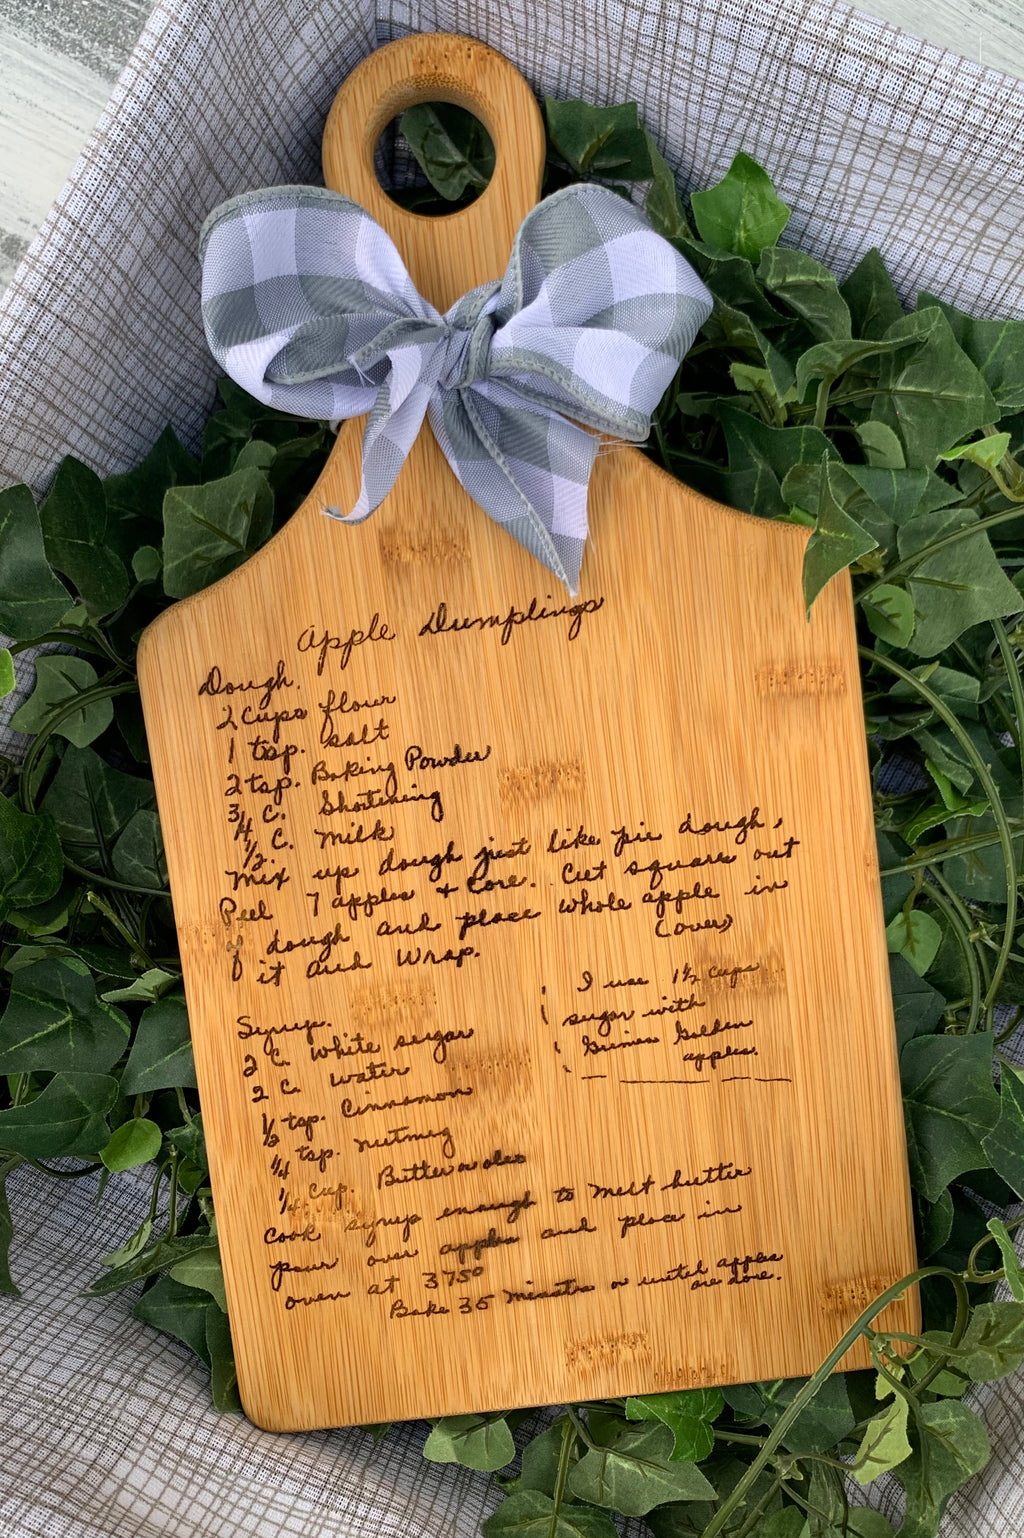 Apple Dumplings
Dough.
2 Cups flour
1 tsp. salt
2 tsp. Baking Powder
3/4 C. Shortening
1/2 C. Milk
Mix up dough just like pie dough,
Peel 7 apples + Core. Cut square out
of dough and place whole apple in
it and Wrap.
(over)
Syrup.
2 C. White sugar
2 C. Water
1/2 tsp. Cinnamon
1/4 tsp. nutmeg
1/4 Cup. Butter or oleo
Cook syrup enough to melt butter
pour over apples and place in
oven at 375°
Bake 35 Minutes or until apples
are done.
I use 1 1/2 cups
sugar with
Grimes Golden
apples.